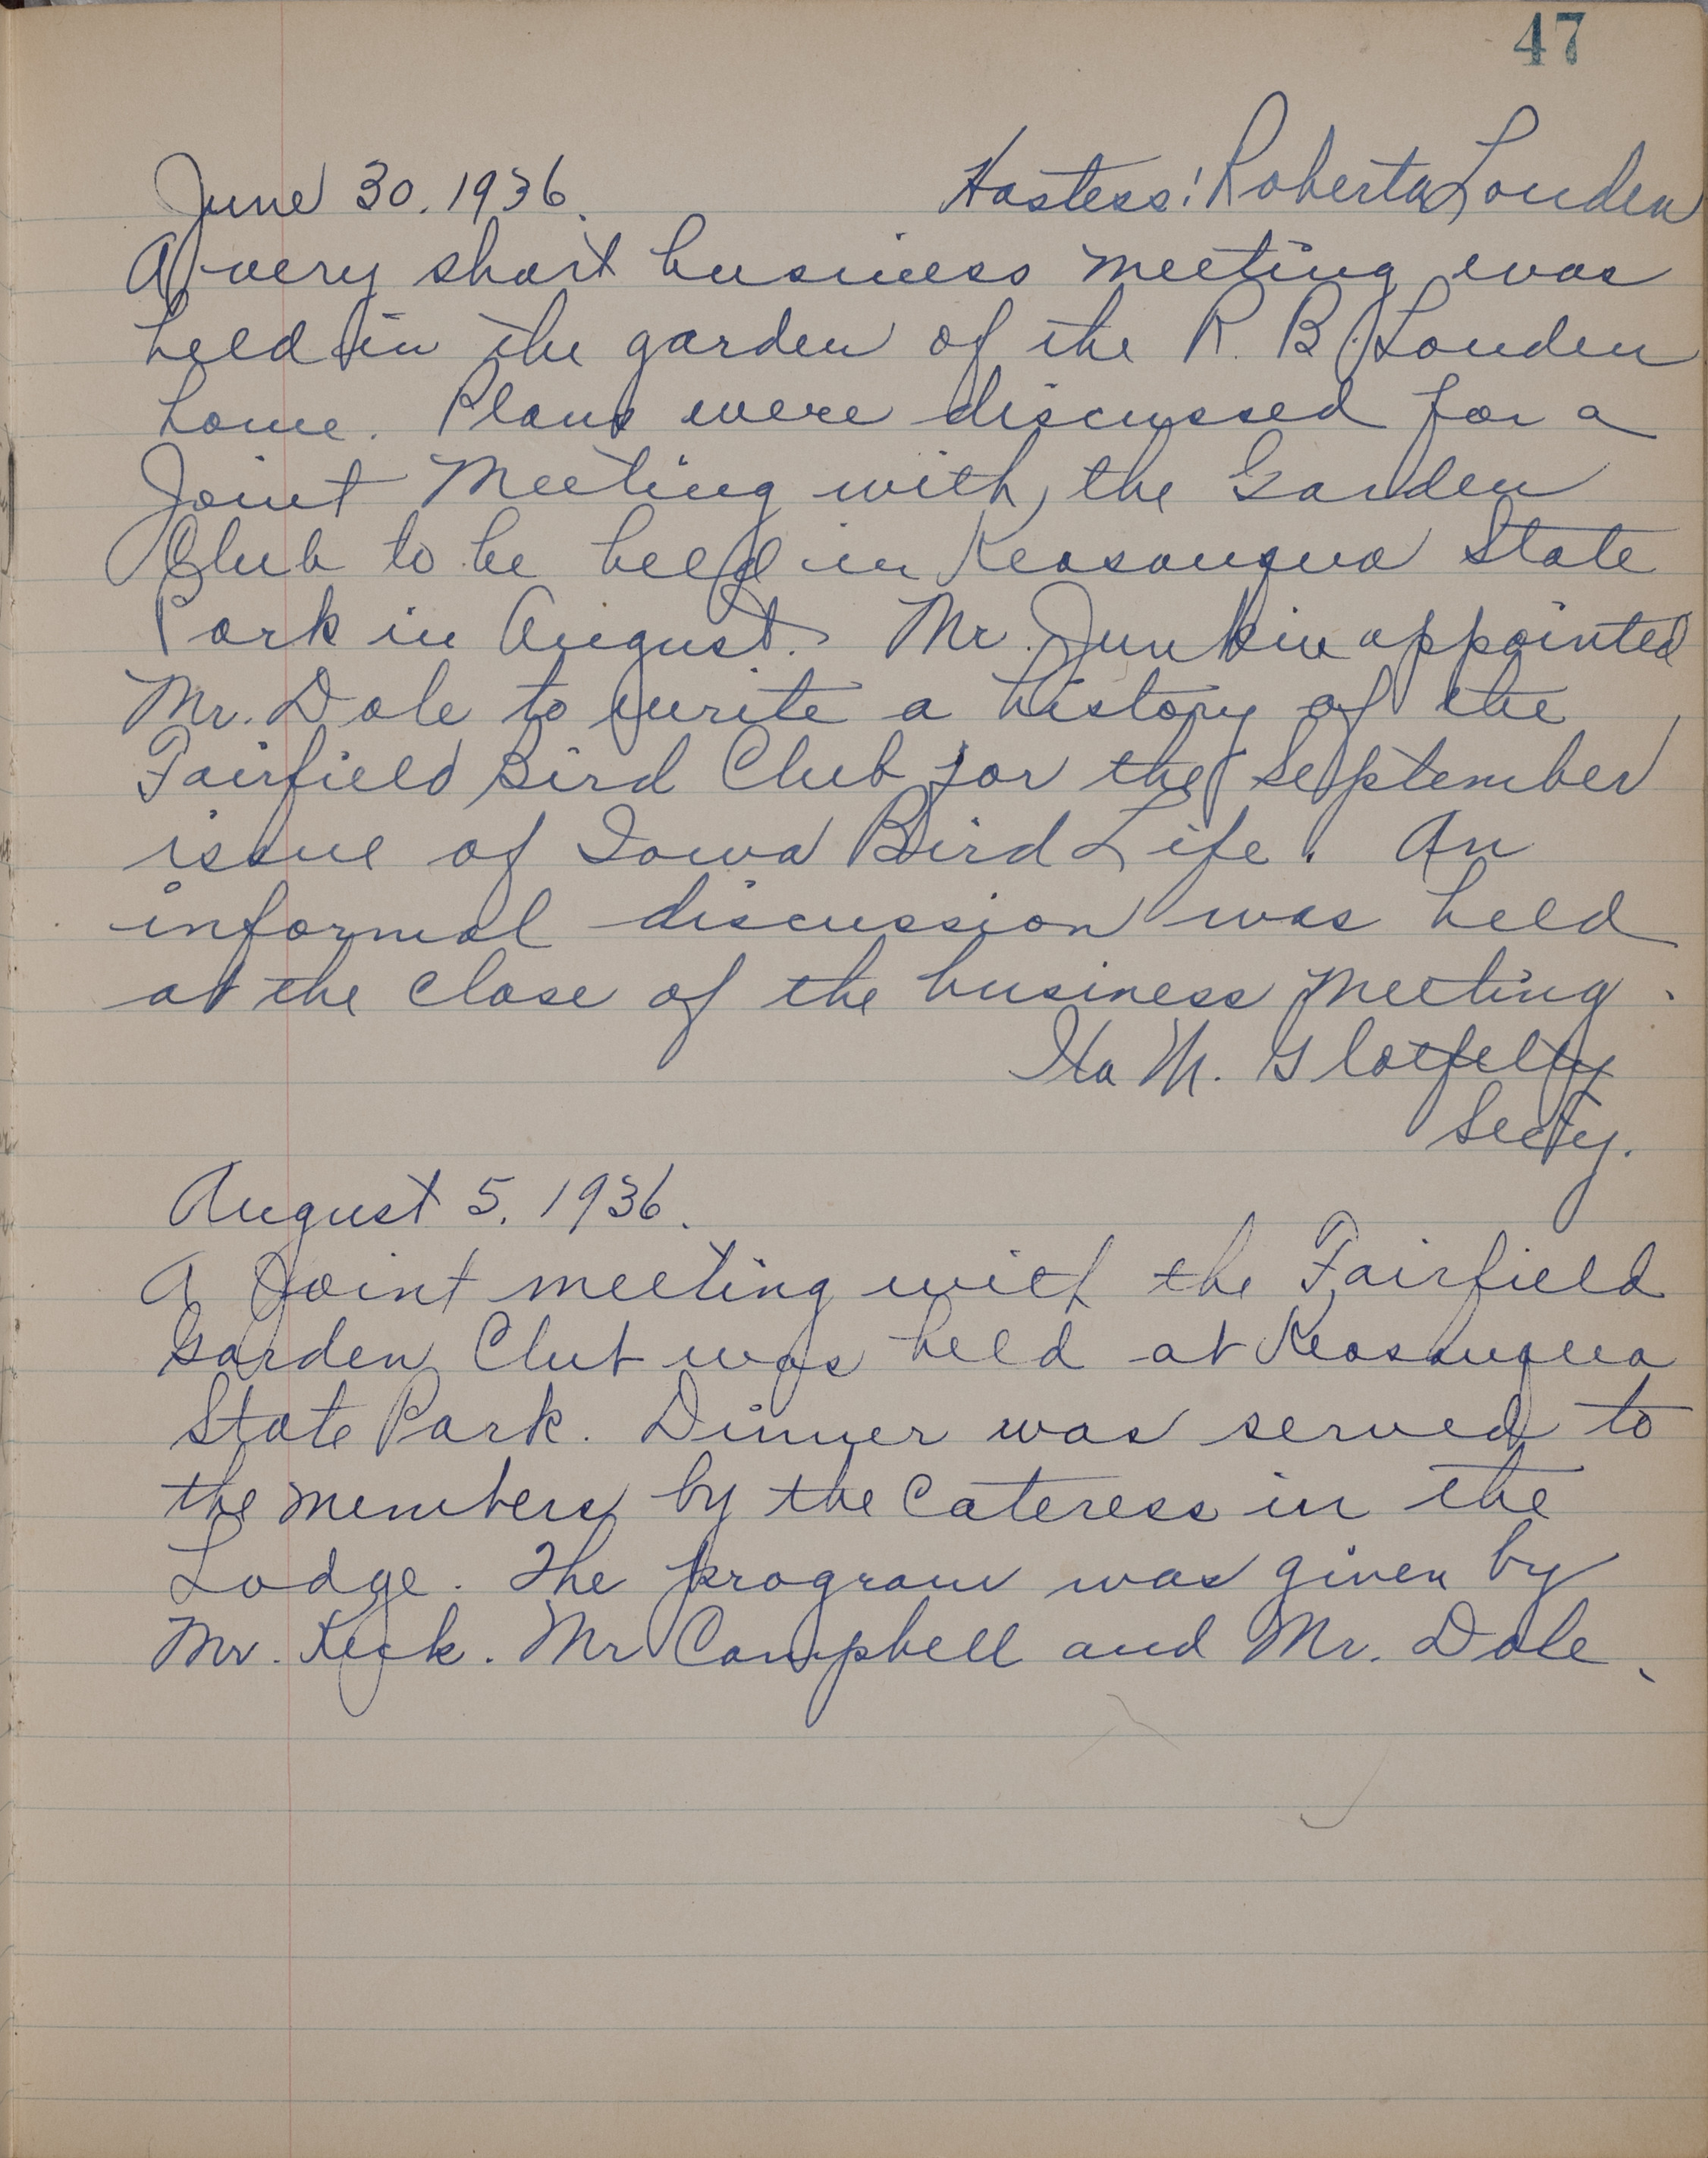 47
June 30. 1936. Hostess: Roberta Louden
A very short business meeting was
held in the garden of the R. B. Louden
home. Plans were discussed for a
Joint Meeting with the Garden
Club to be held in Keosauqua State
Park in August. Mr. Junkin appointed
Mr. Dole to write a history of the
Fairfield Bird Club for the September
issue of Iowa Bird Life. An
informal discussion was held
at the close of the business meeting.
Ita M. Glotfelty
Secty.
August 5. 1936.
A Joint meeting with the Fairfield
Garden Club was held at Keosauqua
State Park. Dinner was served to
the members by the Cateress in the
Lodge. The program was given by
Mr. Keck. Mr Campbell and Mr. Dole.